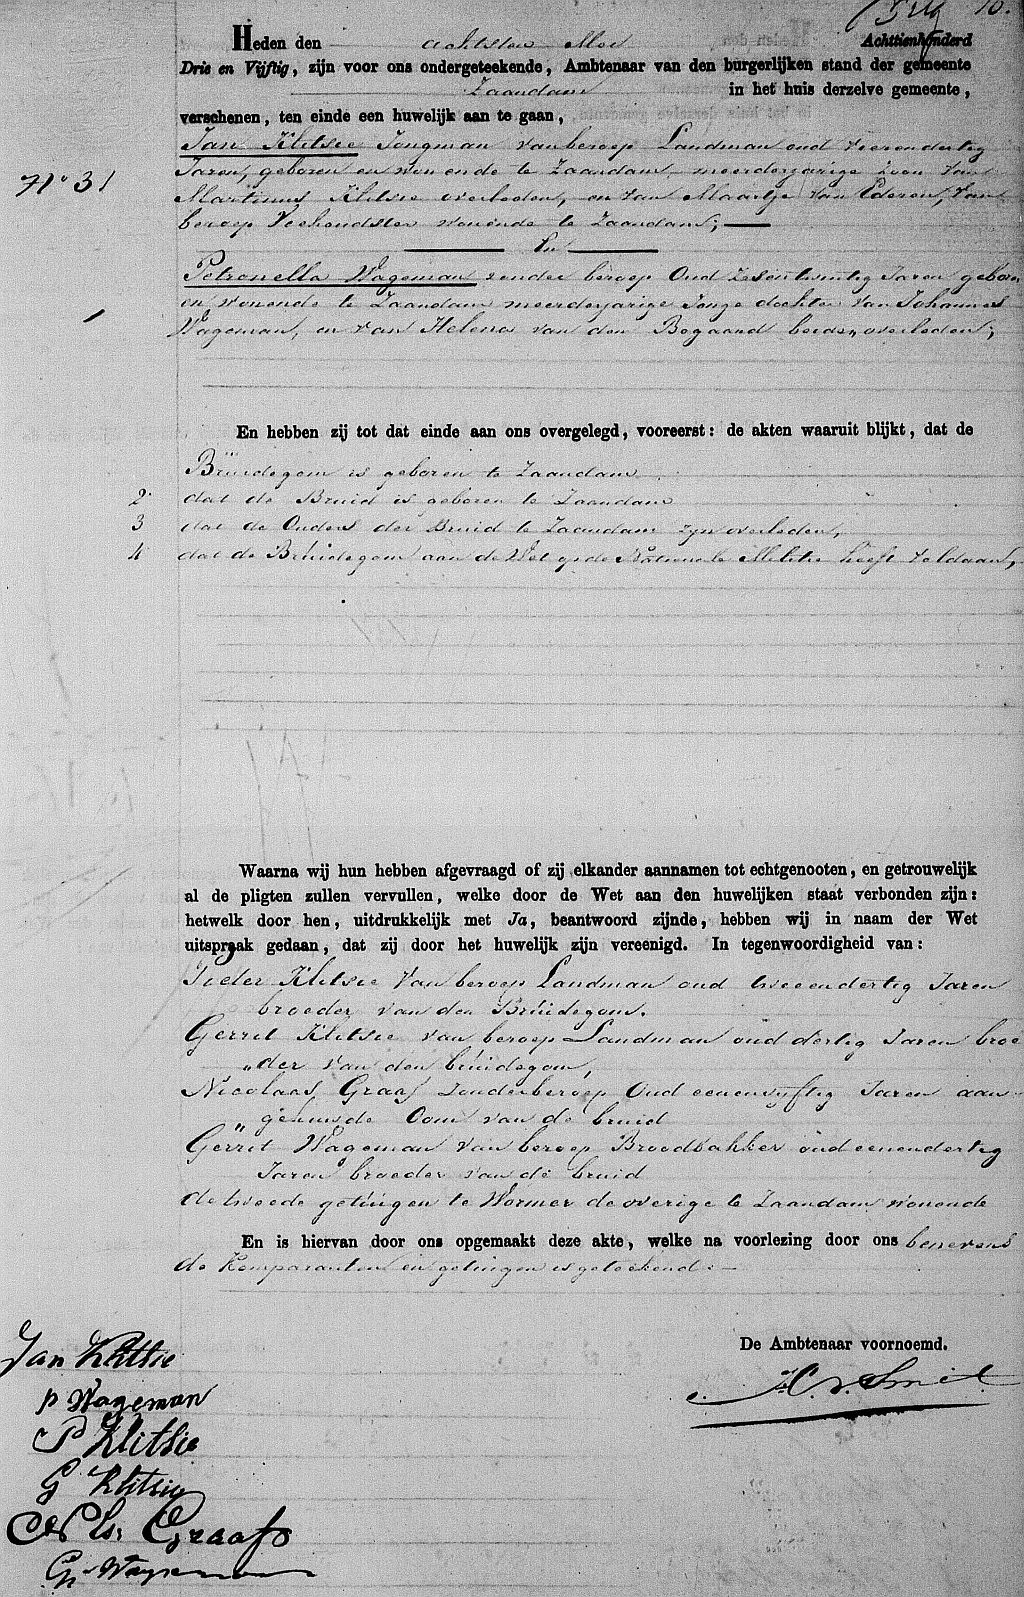 10.
Heden den achtsten Mei Achttienhonderd
Drie en Vijftig, zijn voor ons ondergeteekende, Ambtenaar van den burgerlijken stand der gemeente
Zaandam in het huis derzelve gemeente,
verschenen, ten einde een huwelijk aan te gaan,
Jan Klitsie Jongman van beroep Landman oud vierendertig
No 31
Jaren, geboren en wonende te Zaandam, meerderjarige Zoon van
Martinus Klitsie overleden, en van Maartje van Ederen, van
beroep Veehoudster wonende te Zaandam;
En
Petronella Wageman zonder beroep Oud Zesentwintig Jaren geboren
en wonende te Zaandam meerderjarige Jonge dochter van Johannes
Wageman, en van Helena van den Bogaard beiden overleden;
En hebben zij tot dat einde aan ons overgelegd, vooreerst: de akten waaruit blijkt, dat de
Brüidegom is geboren te Zaandam
2 dat de Bruid is geboren te Zaandam
3 dat de Ouders der Bruid te Zaandam zijn overleden,
4 dat de Bruidegom aan de Wet op de Nationale Militie heeft voldaan,
Waarna wij hun hebben afgevraagd of zij elkander aannamen tot echtgenooten, en getrouwelijk
al de pligten zullen vervullen, welke door de Wet aan den huwelijken staat verbonden zijn:
hetwelk door hen, uitdrukkelijk met Ja, beantwoord zijnde, hebben wij in naam der Wet
uitspraak gedaan, dat zij door het huwelijk zijn vereenigd. In tegenwoordigheid van:
Pieter Klitsie van beroep Landman oud tweeendertig Jaren
broeder van den Brüidegom.
Gerrit Klitsie van beroep Landman oud dertig Jaren broe
„der van den bruidegom,
Nicolaas Graaf zonder beroep Oud eenenvyftig Jaren aan-
gehuwde Oom van de bruid
Gerrit Wageman van beroep Broodbakker oud eenendertig
Jaren broeder van de bruid
de tweede getuigen te Wormer de overige te Zaandam wonende
En is hiervan door ons opgemaakt deze akte, welke na voorlezing door ons benevens
de Komparanten en getuigen is geteekend.
De Ambtenaar voornoemd.
Jan Klitsie
P Wageman
P Klitsie
G Klitsie
Ns. Graaf
G Wageman